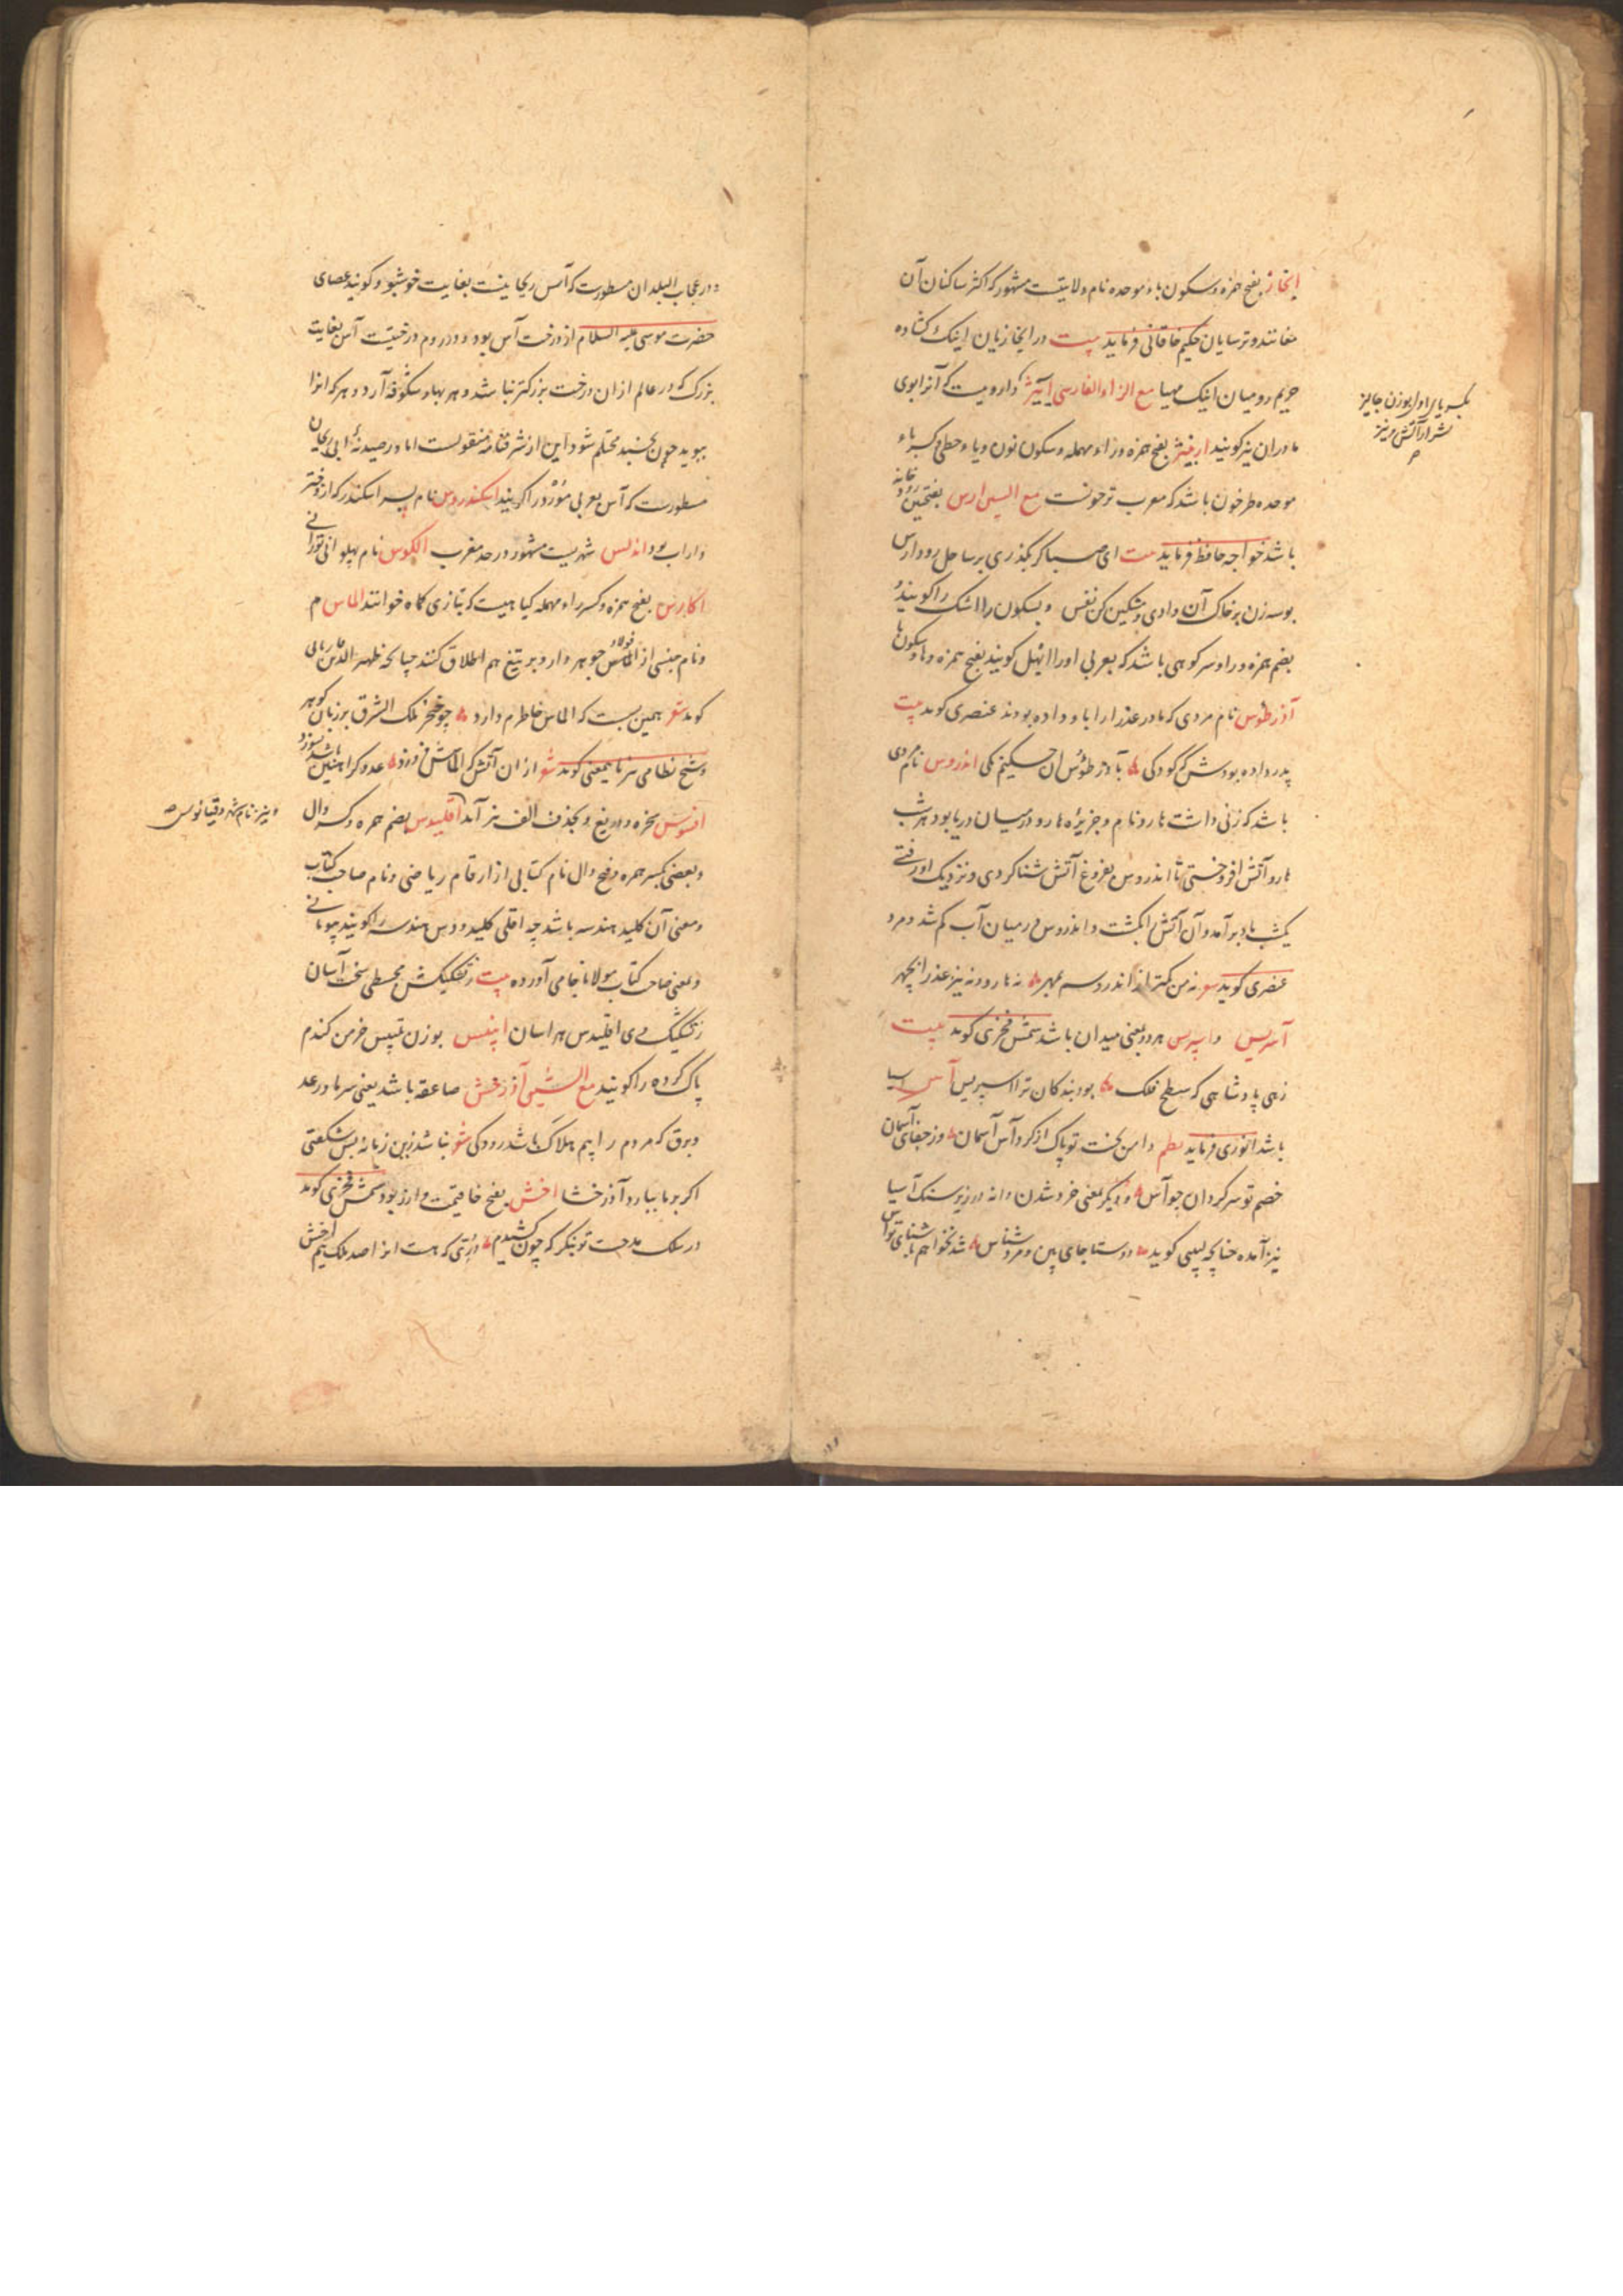 ابخاز بفتح همزه و سکون باء موحده نام ولایتیست مشهور که اکثر ساکنان آن
مغانند و ترسایان حکیم خاقانی فرماید بیت در ابخازیان اینک کشاده
حریم رومیان اینک مهیا مع الزاء الفارسی آییژ داروییست که آنرا بوی
مادران نیز کویند بفتح همزه و زاء مهمله و سکون نون و یاء حطی و کسر باء
موحده طرخون باشد که معرب ترخونست مع السین ارس بفتحتین رودخانه
باشد خواجه حافظ فرماید بیت ای صبا کر بکذری بر ساحل رود ارس
بوسه زن بر خاک آن وادی و مشکین کن نفس و بسکون را اشک را کویند و
بضم همزه و را و سرو کوهی باشد که بعربی او را ابهل کویند بفتح همزه و ها و سکون با
آذر طوس نام مردی که مادر عذرا را باو داده بودند عنصری کوید بیت
پدر داده بودش که کودکی بآذر طوس آن حکیم نکی اندروس نام مردی
باشد که زنی داشت هارو نام و جزیره هارو در میان دریا بود هر شب
هارو آتش افروختی تا اندروس بفروغ آتش شنا کردی و نزدیک او رفتی
یکشب باد برآمد و آن آتش را بکشت و اندروس در میان آب کم شد و مرد
عنصری کوید شعر نه من کمتر از اندروسم بمهر نه هارو و نه نیز عذرا بچهر
آسریس و اسپرس هر دو بمعنی میدان باشد شمس فخری کوید بیت
زهی پادشاهی که سطح فلک بود بندکان ترا اسپریس آس آسیا
باشد انوری فرماید نظم دامن بخت تو پاک از کرد آس آسمان وز جفای آسمان
خصم تو سرکردان چو آس و دیکر بمعنی خرد شدن دانه در زیر سنک آسیا
نیز آمده چنانچه لبیبی کوید دوستا جای بین و مرد شناس شد نخواهم بآشنای تو آس
بکسر یاء اول بوزن جایز
شرار آتش و نیز
و در عجایب البلدان مسطورست که آس ریحانیست بغایت خوشبو و کویند عصای
حضرت موسی علیه السلام از درخت آس بود و در روم درختیست آس بغایت
بزرک که در عالم از آن درخت بزرکتر نباشد و هر بهار شکوفه آرد و هر که آنرا
ببوید چون بخسبد محتلم شود این از شرفنامه منقولست اما در صیدنه ابی ریحان
مسطورست که آس بعربی مورد را کویند اسکندروس نام پسر اسکندر که از دختر
داراب بود اندلس شهریست مشهور در حد مغرب الکوس نام پهلوانی تورانی
اکارس بفتح همزه و کسر راء مهمله کیاهیست که بتازی کماه خوانند الماس م
و نام جنسی از الماس فولاد جوهر دار و بر تیغ هم اطلاق کنند چنانچه ظهیر الدین فاریابی
کوید شعر همین بست که الماس خاطرم دارد چو خنجر ملک الشرق بر زبان کوهر
و شیخ نظامی نیز باین معنی کوید شعر از آن آتش که الماسش فروزد عدو کر آهنین باشد بسوزد
افسوس سخره و دریغ و بحذف الف نیز آمده اقلیدس بضم همزه و کسر دال
و بعضی بکسر همزه و فتح دال نام کتابی از ارقام ریاضی و نام صاحب کتاب
و معنی آن کلید هندسه باشد چه اقلی کلید و دس هندسه را کویند بیونانی
و بمعنی صاحب کتاب مولانا جامی آورده بیت ز تشکیکش مجسطی سخت آسان
ز تشکیک وی اقلیدس هراسان بوزن تلبیس خرمن کندم
پاک کرده را کویند مع الشین آذرخش صاعقه باشد یعنی سرما و رعد
و برق که مردم را بیم هلاک باشد رودکی شعر نباشد زین زمانه بس شکفتی
اکر بر ما ببارد آذرخشا اخش بفتح خا قیمت و ارز بود شمس فخری کوید
در سلک مدحت تو بنکر که چون کشیدم دری که هست آنرا صد ملک نیم اخش
و نیز نام شهر دقیانوس